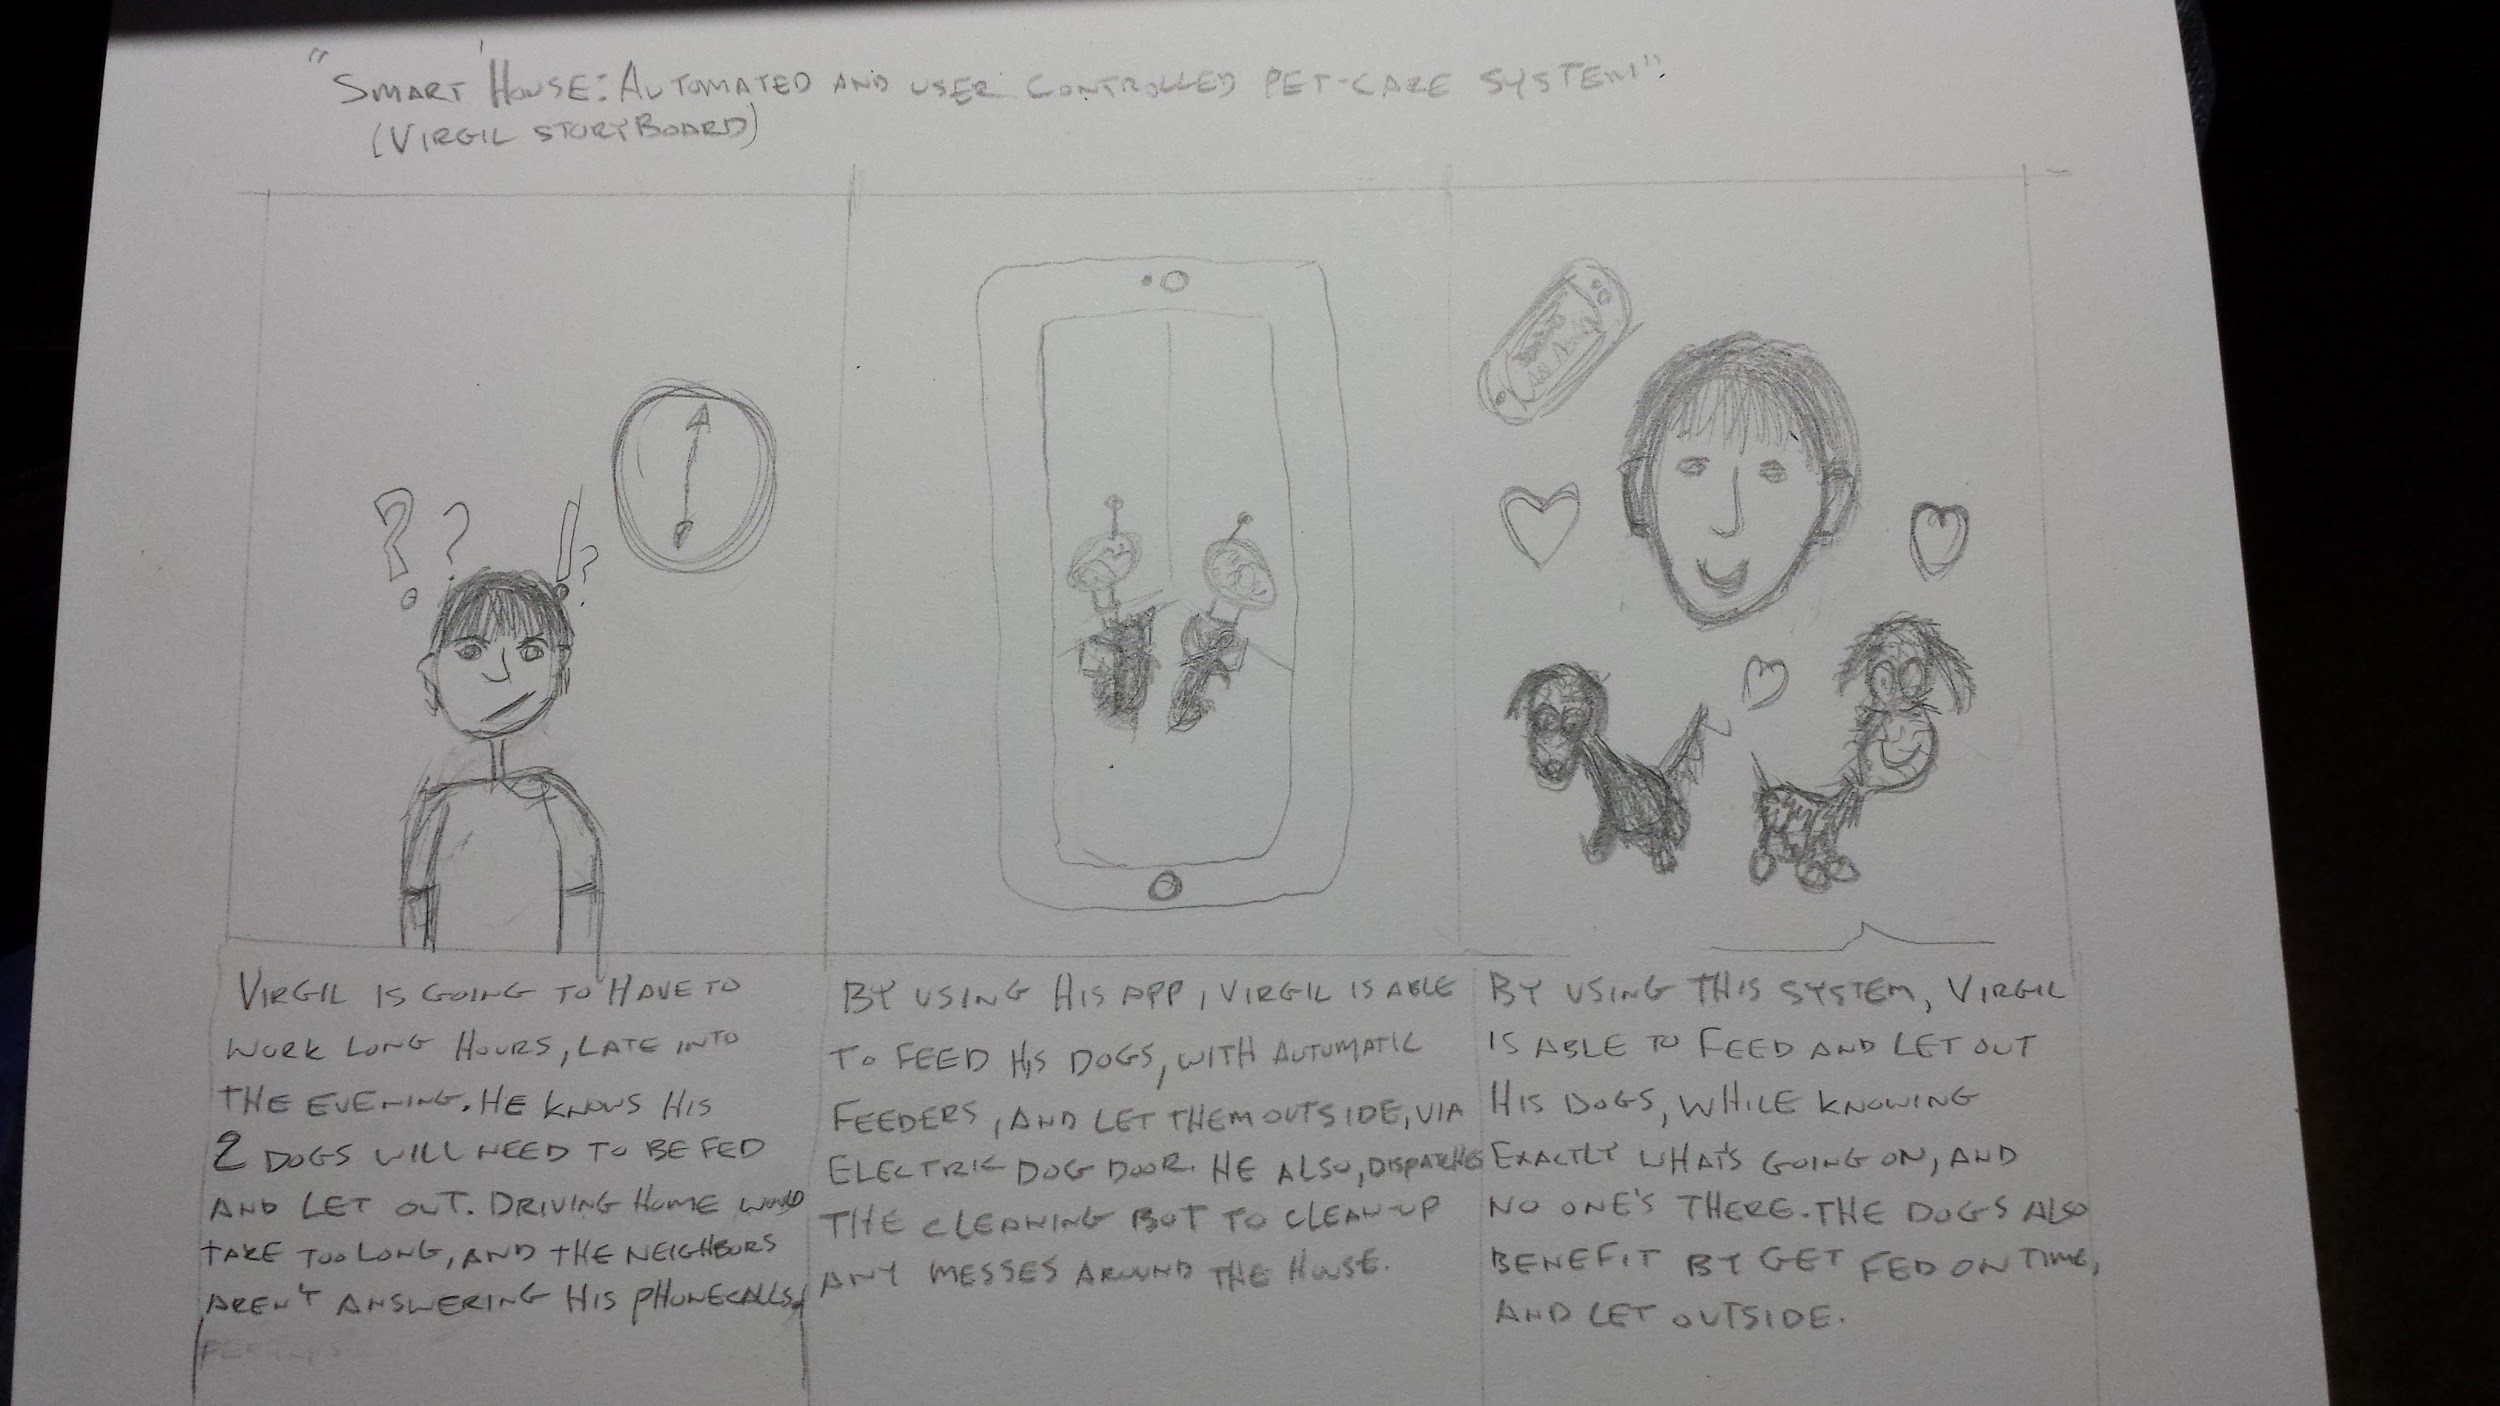 "SMART HOUSE: AUTOMATED AND USER CONTROLLED PET-CARE SYSTEM".
(VIRGIL STORYBOARD)
? ? ! ?
VIRGIL IS GOING TO HAVE TO
WORK LONG HOURS, LATE INTO
THE EVENING. HE KNOWS HIS
2 DOGS WILL NEED TO BE FED
AND LET OUT. DRIVING HOME WOULD
TAKE TOO LONG, AND THE NEIGHBORS
AREN'T ANSWERING HIS PHONECALLS.
BY USING HIS APP, VIRGIL IS ABLE
TO FEED HIS DOGS, WITH AUTUMATIC
FEEDERS, AND LET THEM OUTSIDE, VIA
ELECTRIC DOG DOOR. HE ALSO, DISPATCHES
THE CLEANING BOT TO CLEAN-UP
ANY MESSES AROUND THE HOUSE.
BY USING THIS SYSTEM, VIRGIL
IS ABLE TO FEED AND LET OUT
HIS DOGS, WHILE KNOWING
EXACTLY WHAT'S GOING ON, AND
NO ONE'S THERE. THE DOGS ALSO
BENEFIT BY GET FED ON TIME,
AND LET OUTSIDE.